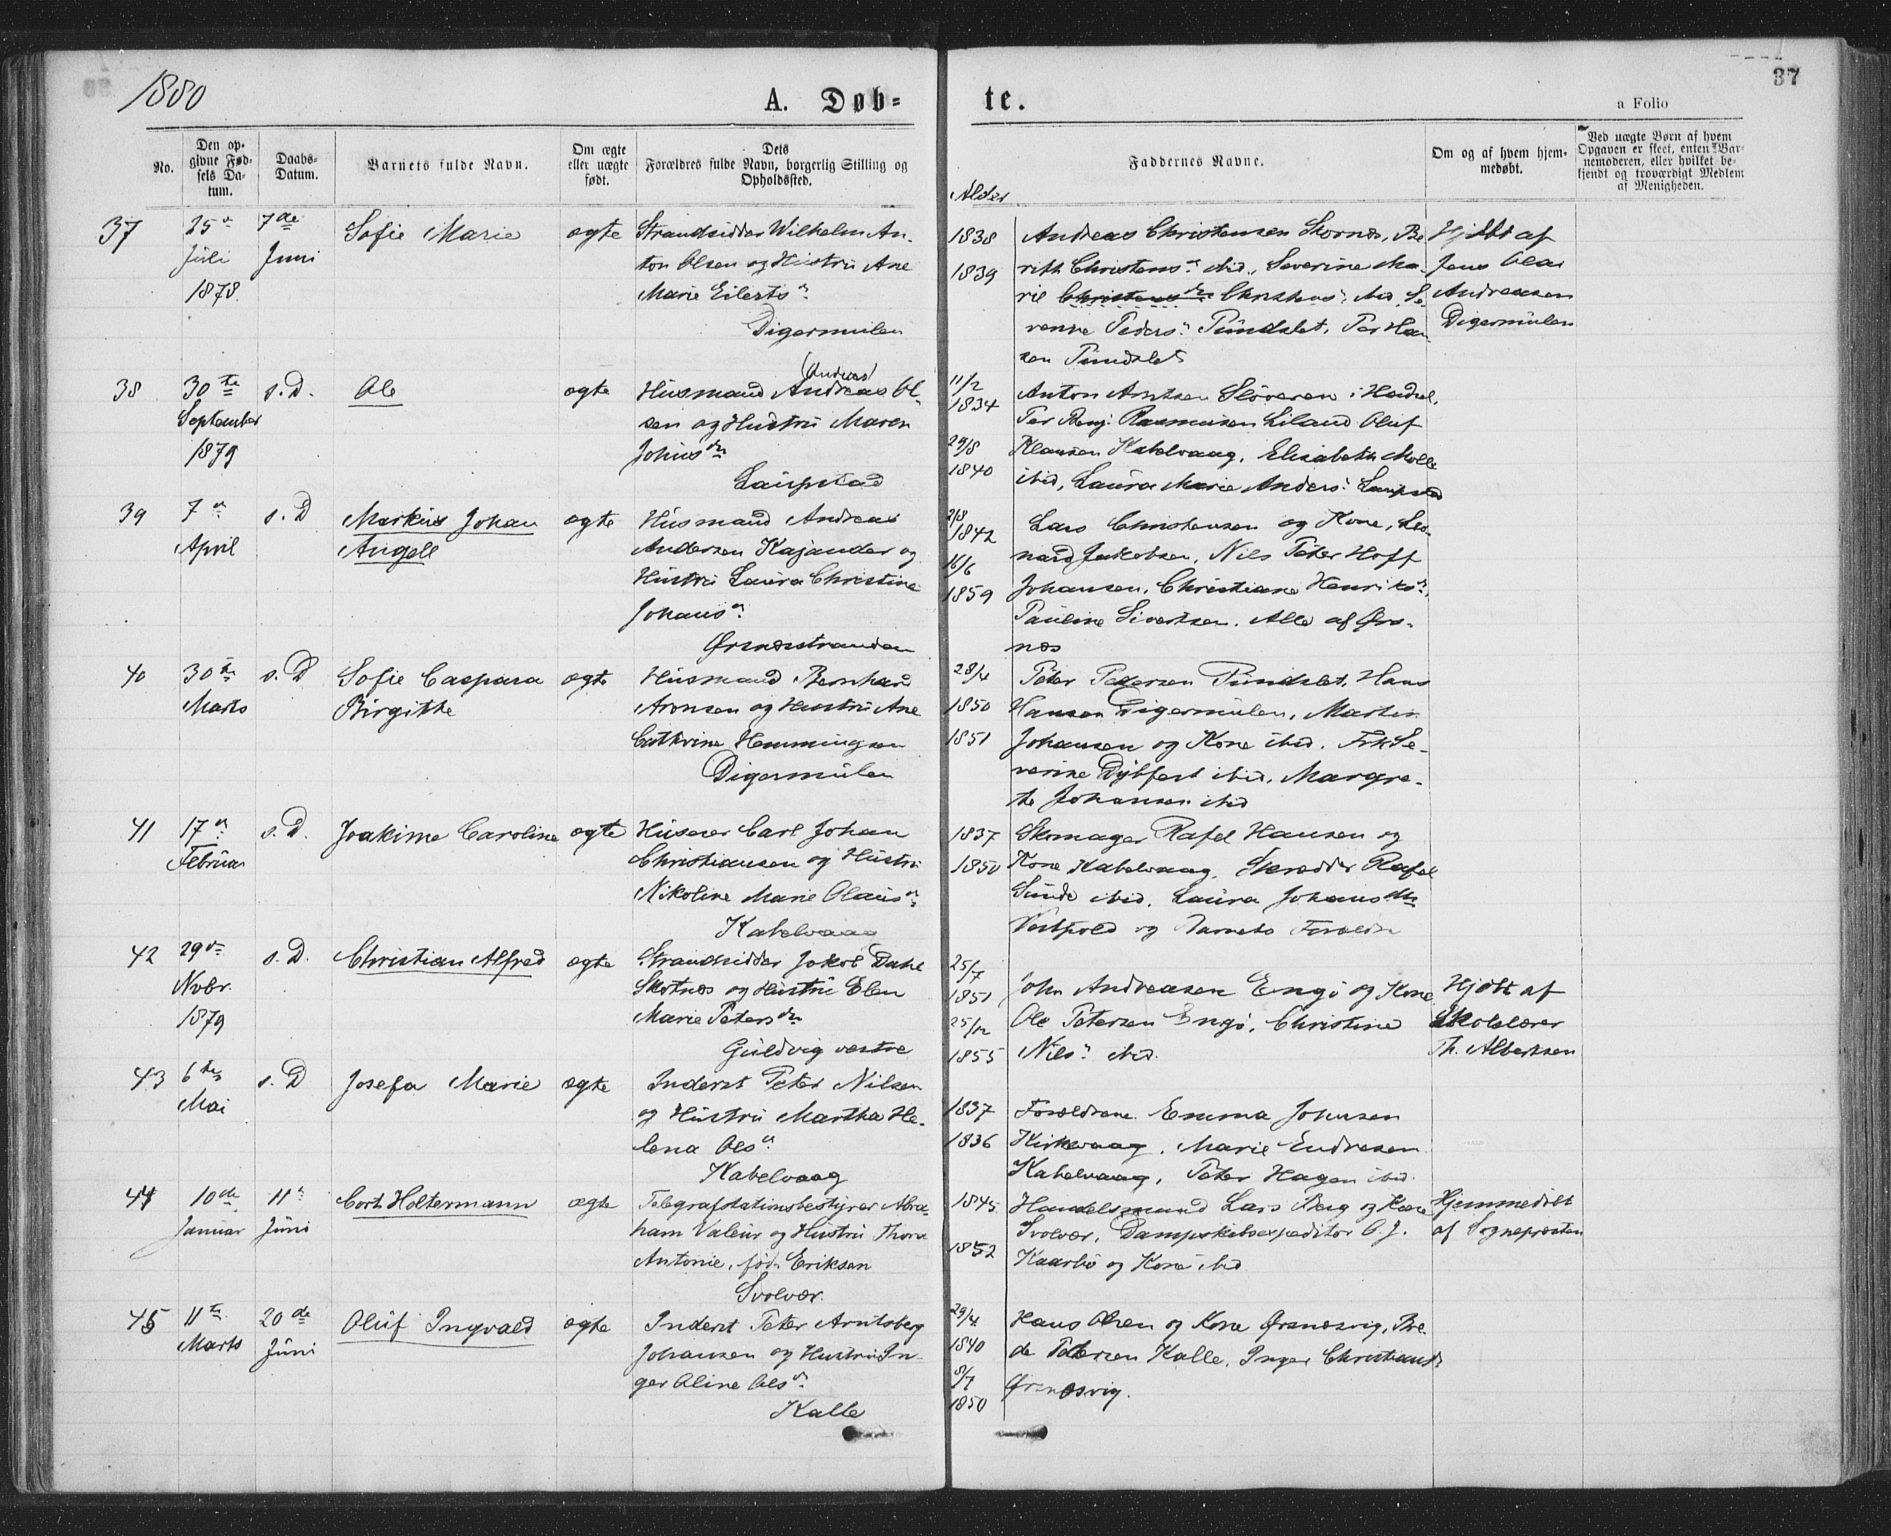 1880
A. Døb-
te.
37
a Folio
No.
Den op-
givne Fød-
sels Da-
tum.
Daabs-
Datum.
Barnets fulde Navn.
Om ægte
eller uægte
født.
Dets
Forældres fulde Navn, borgerlig Stilling og
Opholdssted.
Alder
Faddernes Navne.
Om og af hvem hjem-
medøbt.
Ved uægte Børn af hvem
Opgaven er skeet, enten Bar-
nemoderen, eller hvilket be-
kjendt og troværdigt Medlem
af Menigheden.
37
25
Juli
1878.
7de
Juni
Sofie Marie
ægte
Strandsidder Wilhelm An-
ton Olsen og Hustru Ane
Marie Eilerts
Digermulen
1838
1839
Andreas Christensen Skornæs, Be
rith Christens ibid, Severine Ma-
rie Christens ibid, Se
verine Peders Pundslet, Per Han
sen Pundslet
Hjdbt af
Jens Olai
Andreasen
Digermulen
38
30te
September
1879
s. D.
Ole
ægte
Husmand Andreas Ol-
(Andreas)
sen og Hustru Maren
Johns
Laupstad
11/2
1834
29/8
1840
Anton Arntsen Sløveren i Hadsel,
Per Benj. Rasmusen Liland Oluf
Klausen Kabelvaag, Elisabeth Molle
ibid, Laura Marie Anders Laupstad
39
7
April
s. D
Markus Johan
Angell
ægte
Husmand Andreas
Andersen Kajander og
Hustru Laura Christine
Johans
Ørsnæsstranden
2/8
1842
16/6
1859
Lars Christensen og Kone, Leo-
nard Jakobsen, Nils Peter Hoff
Johansen, Christiane Henriks,
Pauline Sivertsen. Alle af Ørs-
næs
40
30
Marts
s. D
Sofie Caspara
Birgitte
ægte
Husmand Bernhard
Aronsen og Hustru Ane
Cathrine Hemmingsen
Digermulen
28/4
1850
1851
Peter Petersen Pundslet, Hans
Hansen Digermulen, Martin
Johansen og Kone ibid. Frk Se-
verine Dybfest ibid, Margre-
te Johansen ibid
41
17
Februar
s. D.
Joakime Caroline
ægte
Huseier Carl Johan
Christiansen og Hustru
Nikoline Marie Olaus
Kabelvaag
1837
1850
Skomager Rafel Hansen og
Kone Kabelvaag, Skrædder Rafel
Sunde ibid, Laura Johans
og Barnets Forældre
42
29
Nvbr.
1879
s. D.
Christian Alfred
ægte
Strandsidder Jakob Dahl
Skotnæs og Hustru Elen
Marie Peters
Guldvig vestre
25/7
1851
25/12
1855
John Andreasen Engø og Kone
Ole Petersen Engø, Christine
Nils ibid.
Hjdbt af
Skolelærer
Th. Albertsen
43
6te
Mai
s. D
Josefa Marie
ægte
Inderst Peter Nilsen
og Hustru Martha He-
lena Ols
Kabelvaag
1837
1836
Forældrene. Emma Johnsen
Kirkevaag, Marie Endresen
Kabelvaag, Peter Hagen ibid.
44
10de
Januar
11
Juni
Cort Holtermann
ægte
Telegrafstationsbestyrer Abra-
ham Valeur og Hustru Thora
Antonie, fød Eriksen
Svolvær.
1845
1852
Handelsmand Lars Berg og Kone
Svolvær, Dampskibsexpeditor O. J.
Kaarbø og Kone ibid
Hjemmedøbt
af Sognepræsten
45
11te
Marts
20de
Juni
Oluf Ingvald
ægte
Inderst Peter Arntsberg
Johansen og Hustru In-
ger Oline Ols
Kalle
29/4
1840
8/7
1850
Hans Olsen og Kone Ørsnæsvig, Bre-
de Petersen Kalle, Inger Christians
Ørsnæsvig.